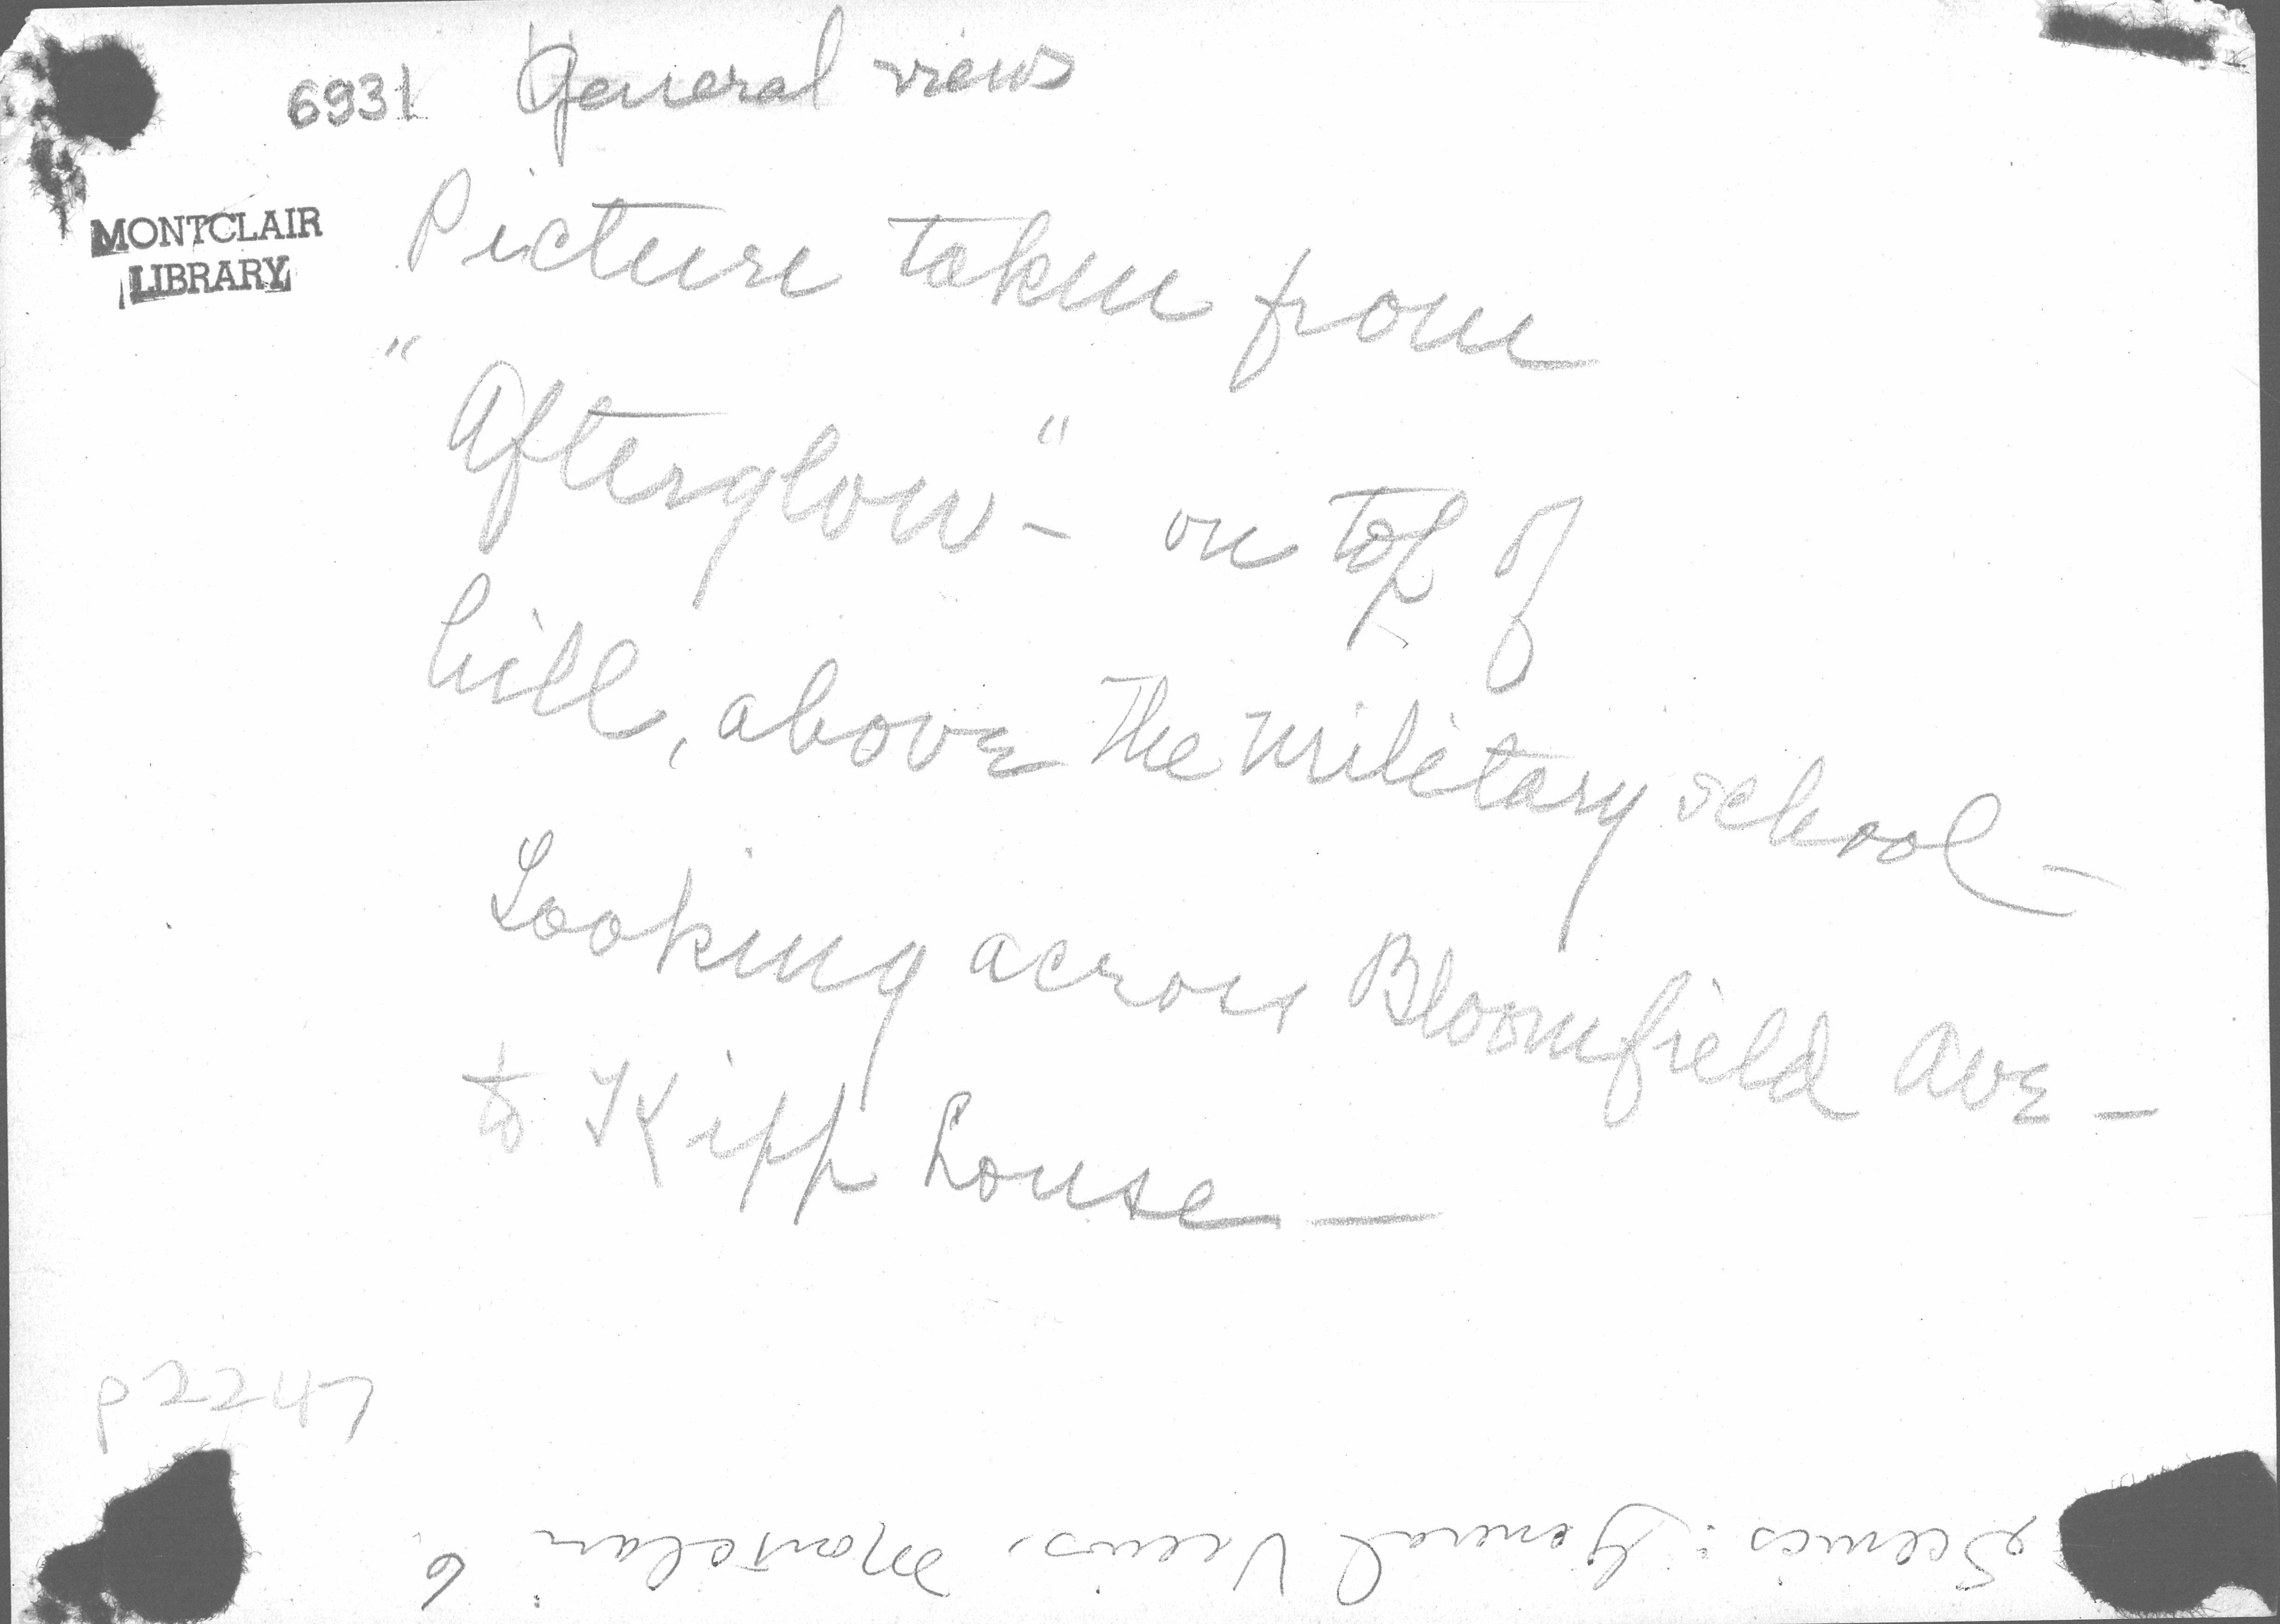 6931 General views
MONTCLAIR
LIBRARY
Picture taken from
"Afterglow" - on top of
hill, above the military school -
Looking across Bloomfield Ave -
to Kipp house -
P2247
Scenes: General Views, Montclair: 6